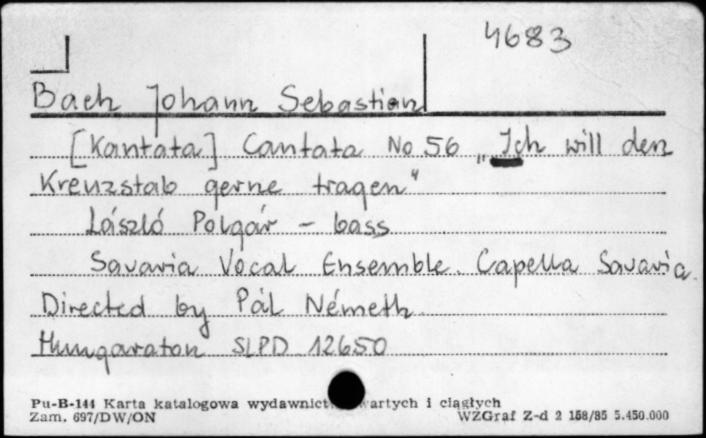 4683
Bach Johann Sebastian
[Kantata] Cantata No 56 „Ich will den
Kreuzstab gerne tragen"
László Polgár - bass
Savaria Vocal Ensemble. Capella Savaria.
Directed by Pál Németh
Hungaroton SLPD 12650
Pu-B-144 Karta katalogowa wydawnict wartych i ciągłych
Zam. 697/DW/ON WZGraf Z-d 2 158/85 5.450.000